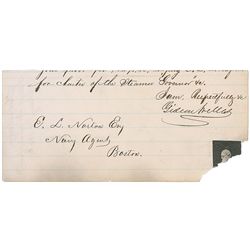 for Charter of the Steamer Governor &c.
I am, Respectfully &c
Gideon Welles
E. L. Norton Esq
Navy Agent
Boston.